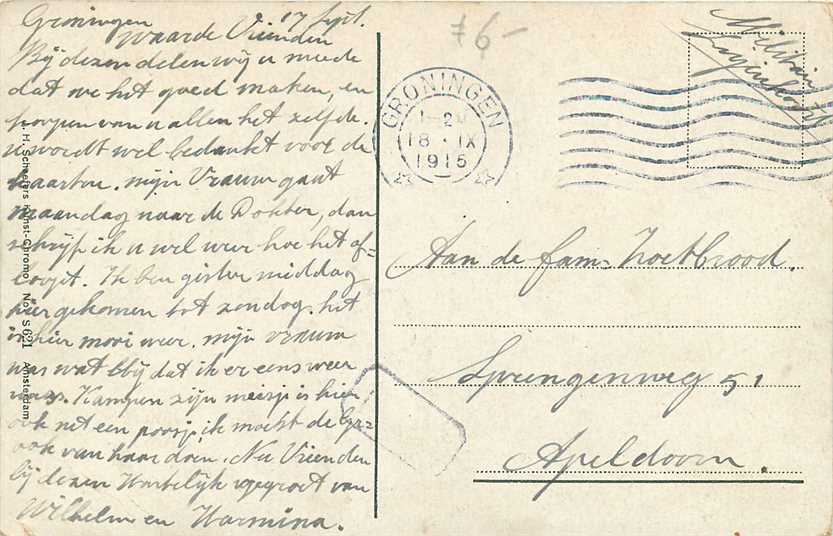 Groningen 17 Sept.
Waarde Vrienden
Bij dezen delen wij u mede
dat we het goed maken, en
hoopen van u allen het zelfde.
u wordt wel bedankt voor de
kaarten. mijn Vrouw gaat
maandag naar de Dokter, dan
schrijf ik u wel weer hoe het af=
loopt. Ik ben gister middag
hier gekomen tot zondag. het
is hier mooi weer. mijn vrouw
was wat blij dat ik er eens weer
was. Kampen zijn meisje is hier
ook net een poosje, ik moest de
ook van haar doen. Nu Vrienden
bij dezen Hartelijk gegroet van
Wilhelm en Harmina.
L. H. Schaefer's Kunst-Chromo No. S 621 Amsterdam
76-
GRONINGEN
1-2
18 IX
1915
Militair
Aan de fam= Zoetbrood.
Sprengenweg 51
Apeldoorn.